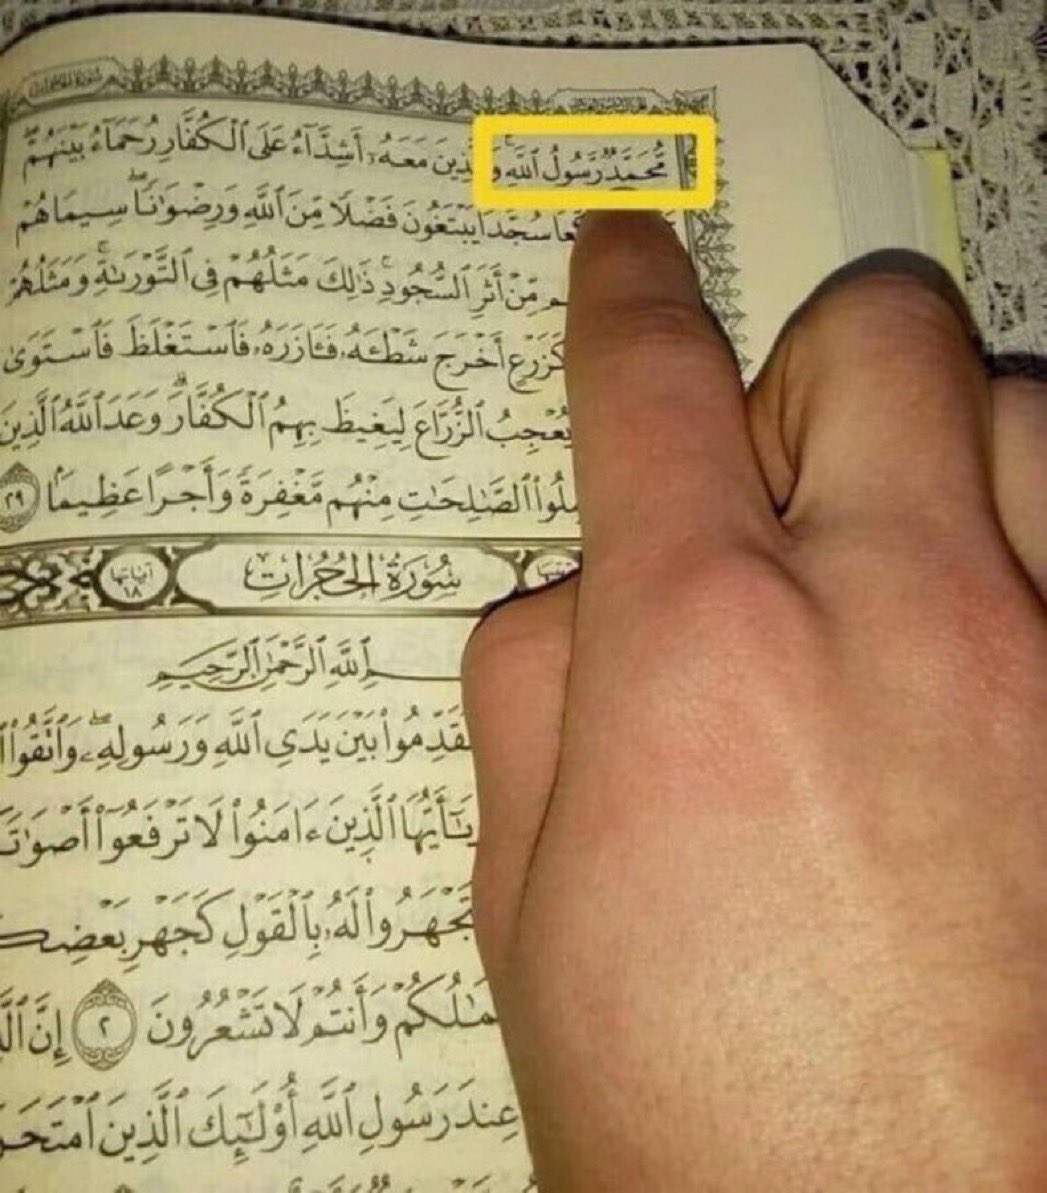 مُّحَمَّدٌ رَّسُولُ ٱللَّهِۚ وَٱلَّذِينَ مَعَهُۥٓ أَشِدَّآءُ عَلَى ٱلْكُفَّارِ رُحَمَآءُ بَيْنَهُمْۖ
سُجَّدًا يَبْتَغُونَ فَضْلًا مِّنَ ٱللَّهِ وَرِضْوَٰنًاۖ سِيمَاهُمْ
مِّنْ أَثَرِ ٱلسُّجُودِۚ ذَٰلِكَ مَثَلُهُمْ فِى ٱلتَّوْرَىٰةِۚ وَمَثَلُهُمْ
كَزَرْعٍ أَخْرَجَ شَطْـَٔهُۥ فَـَٔازَرَهُۥ فَٱسْتَغْلَظَ فَٱسْتَوَىٰ
يُعْجِبُ ٱلزُّرَّاعَ لِيَغِيظَ بِهِمُ ٱلْكُفَّارَۗ وَعَدَ ٱللَّهُ ٱلَّذِينَ
ٱلصَّٰلِحَٰتِ مِنْهُم مَّغْفِرَةً وَأَجْرًا عَظِيمًۢا ٢٩
سُورَةُ الحُجُرَاتِ آياتها ١٨
ٱللَّهِ ٱلرَّحْمَٰنِ ٱلرَّحِيمِ
تُقَدِّمُوا۟ بَيْنَ يَدَىِ ٱللَّهِ وَرَسُولِهِۦۖ وَٱتَّقُوا۟
يَٰٓأَيُّهَا ٱلَّذِينَ ءَامَنُوا۟ لَا تَرْفَعُوٓا۟
تَجْهَرُوا۟ لَهُۥ بِٱلْقَوْلِ كَجَهْرِ
وَأَنتُمْ لَا تَشْعُرُونَ ٢ إِنَّ
عِندَ رَسُولِ ٱللَّهِ أُو۟لَٰٓئِكَ ٱلَّذِينَ